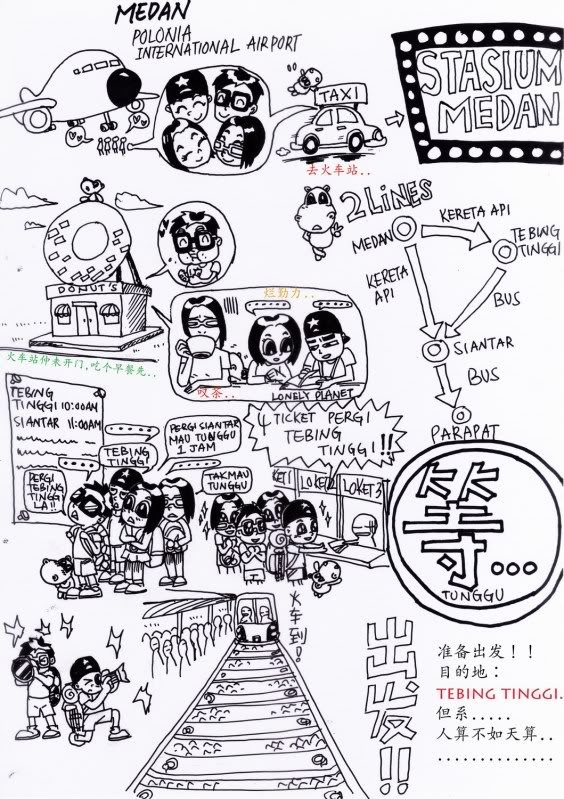 MEDAN
POLONIA
INTERNATIONAL AIRPORT
TAXI
去火车站..
STASIUM
MEDAN
DONUT'S
火车站仲未开门,吃个早餐先..
烂勤力..
叹茶..
LONELY PLANET
2 LINES
MEDAN
KERETA API
TEBING
TINGGI
KERETA
API
BUS
SIANTAR
BUS
PARAPAT
TEBING
TINGGI 10:00AM
SIANTAR 11:00AM
PERGI
TEBING
TINGGI
LA!!
TEBING
TINGGI
PERGI SIANTAR
MAU TUNGGU
1 JAM
TAK MAU
TUNGGU
4 TICKET PERGI
TEBING
TINGGI!!
LOKET 2
LOKET 3
等...
TUNGGU
火车到!
出发!!
准备出发！！
目的地：
TEBING TINGGI.
但系.....
人算不如天算..
..............